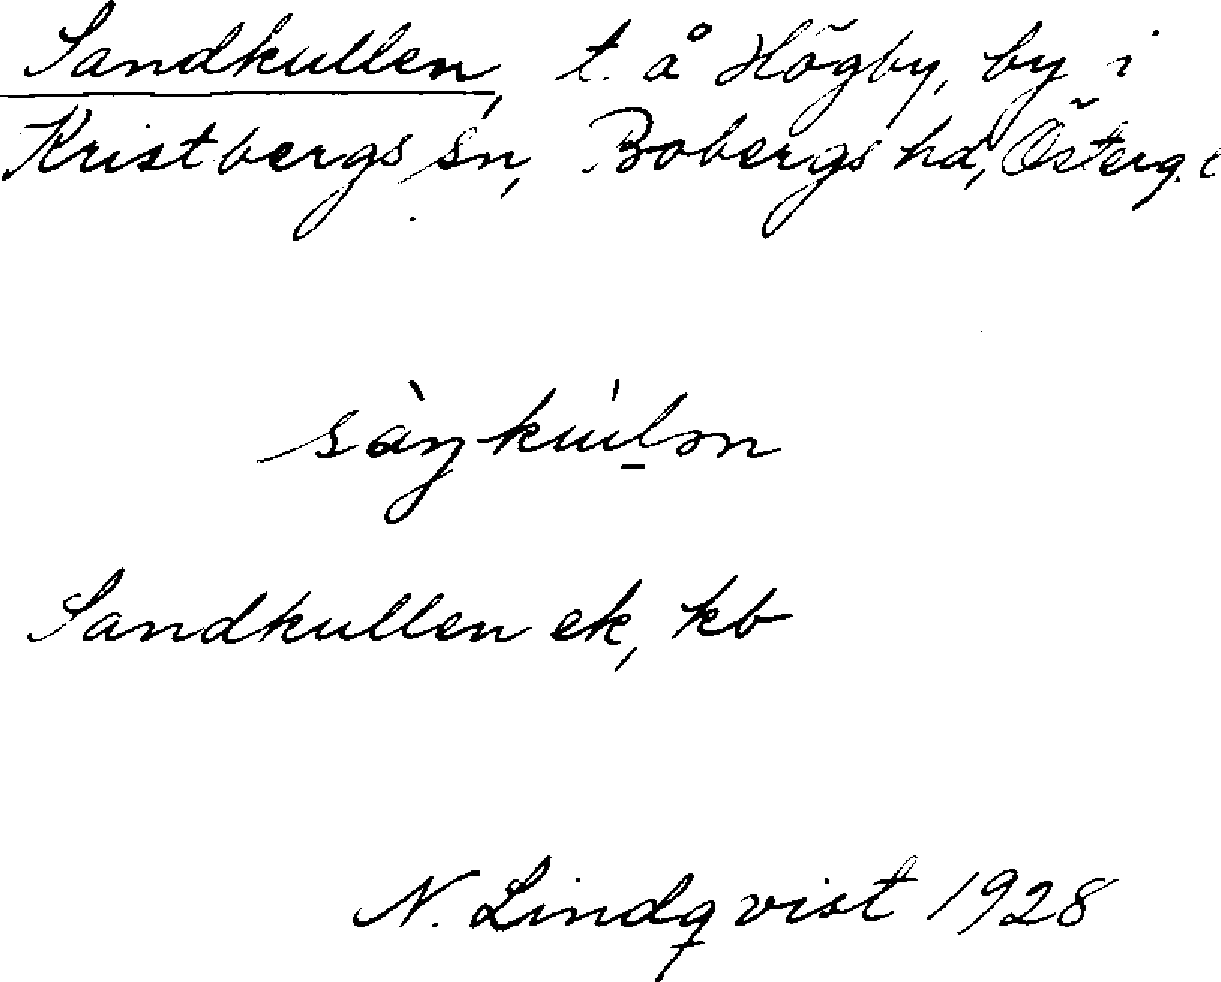 Sandkullen, t. å Högby, by i
Kristbergs sn, Bobergs hd, Österg. l
sàŋkúlən
Sandkullen ek, kb
N. Lindqvist 1928